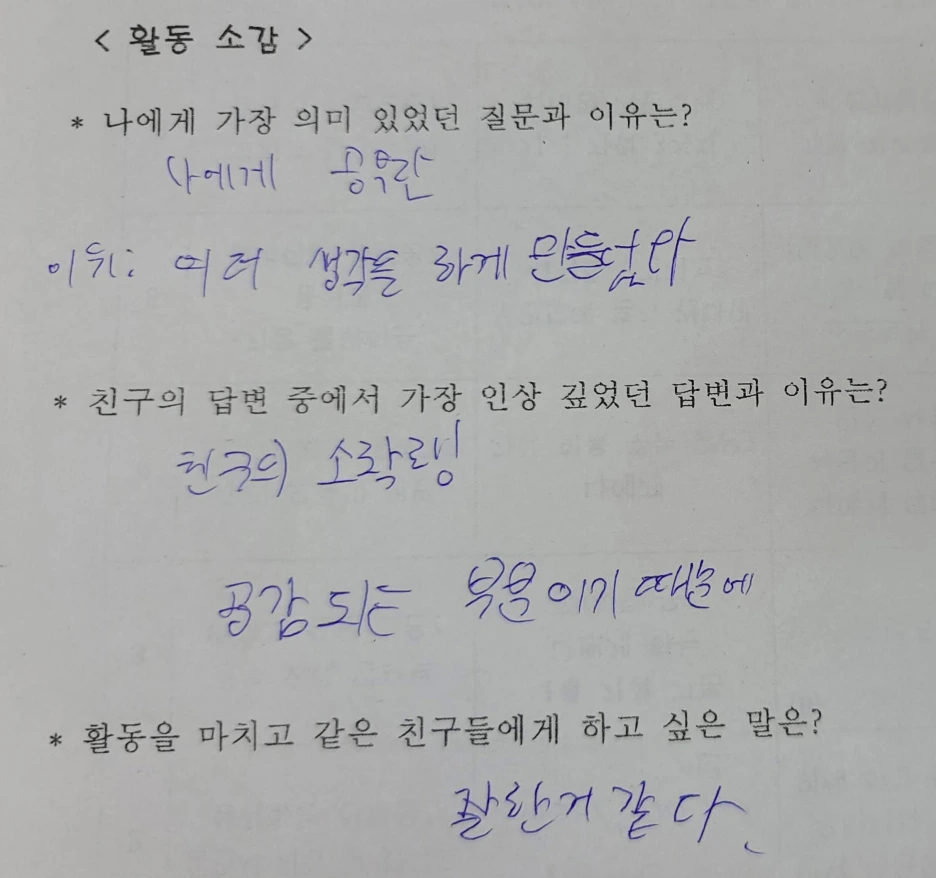 < 활동 소감 >
* 나에게 가장 의미 있었던 질문과 이유는?
나에게 공부란
이유: 여러 생각들 하게 만들었다
* 친구의 답변 중에서 가장 인상 깊었던 답변과 이유는?
친구의
공감되는 부분이기 때문에
* 활동을 마치고 같은 친구들에게 하고 싶은 말은?
잘한거 같다.